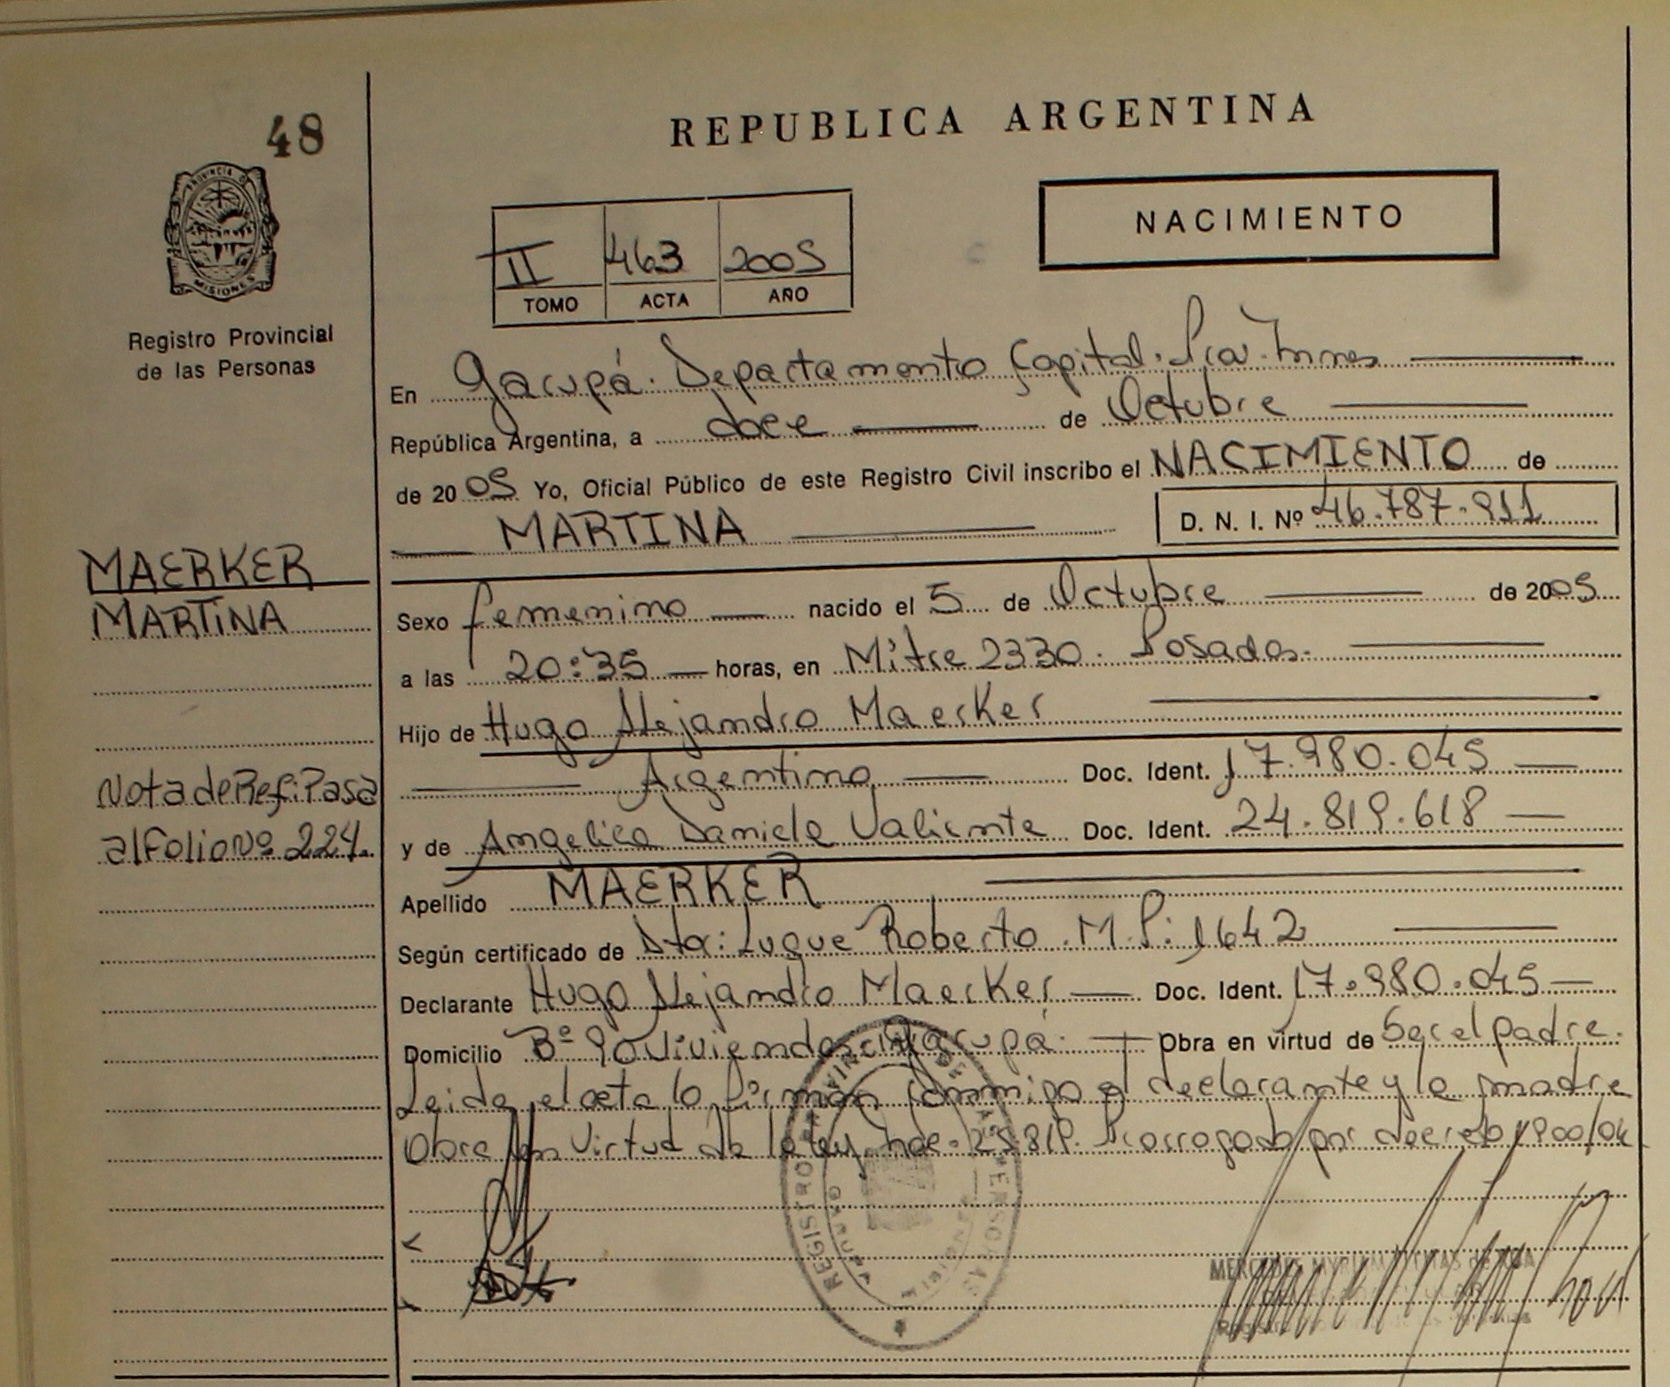 48
REPUBLICA ARGENTINA
PROVINCIA D
MISIONES
Registro Provincial
de las Personas
NACIMIENTO
II 463 2005
TOMO ACTA AÑO
En Garupá. Departamento Capital.
República Argentina, a doce de Octubre
de 2005 Yo, Oficial Público de este Registro Civil inscribo el NACIMIENTO de
MARTINA D. N. I. Nº 46.787.911
MAERKER
MARTINA
Sexo femenino nacido el 5 de Octubre de 2005
a las 20:35 horas, en Mitre 2330. Posadas.
Hijo de Hugo Alejandro Maerker
Argentino Doc. Ident. 17.980.045
y de Angelica Daniela Valiente Doc. Ident. 24.819.618
Nota de Ref: Pasa
al Folio Nº 224.
Apellido MAERKER
Según certificado de Dto: Luque Roberto M.P: 1642
Declarante Hugo Alejandro Maerker Doc. Ident. 17.980.045
Domicilio Bº 90 Viviendas Garupá. Obra en virtud de Ser el padre.
Leida el acta lo firman conmigo el declarante y la madre
Obra en virtud de la ley 25.819. Prorrogado por decreto 1900/04
REGISTRO PERSONAS